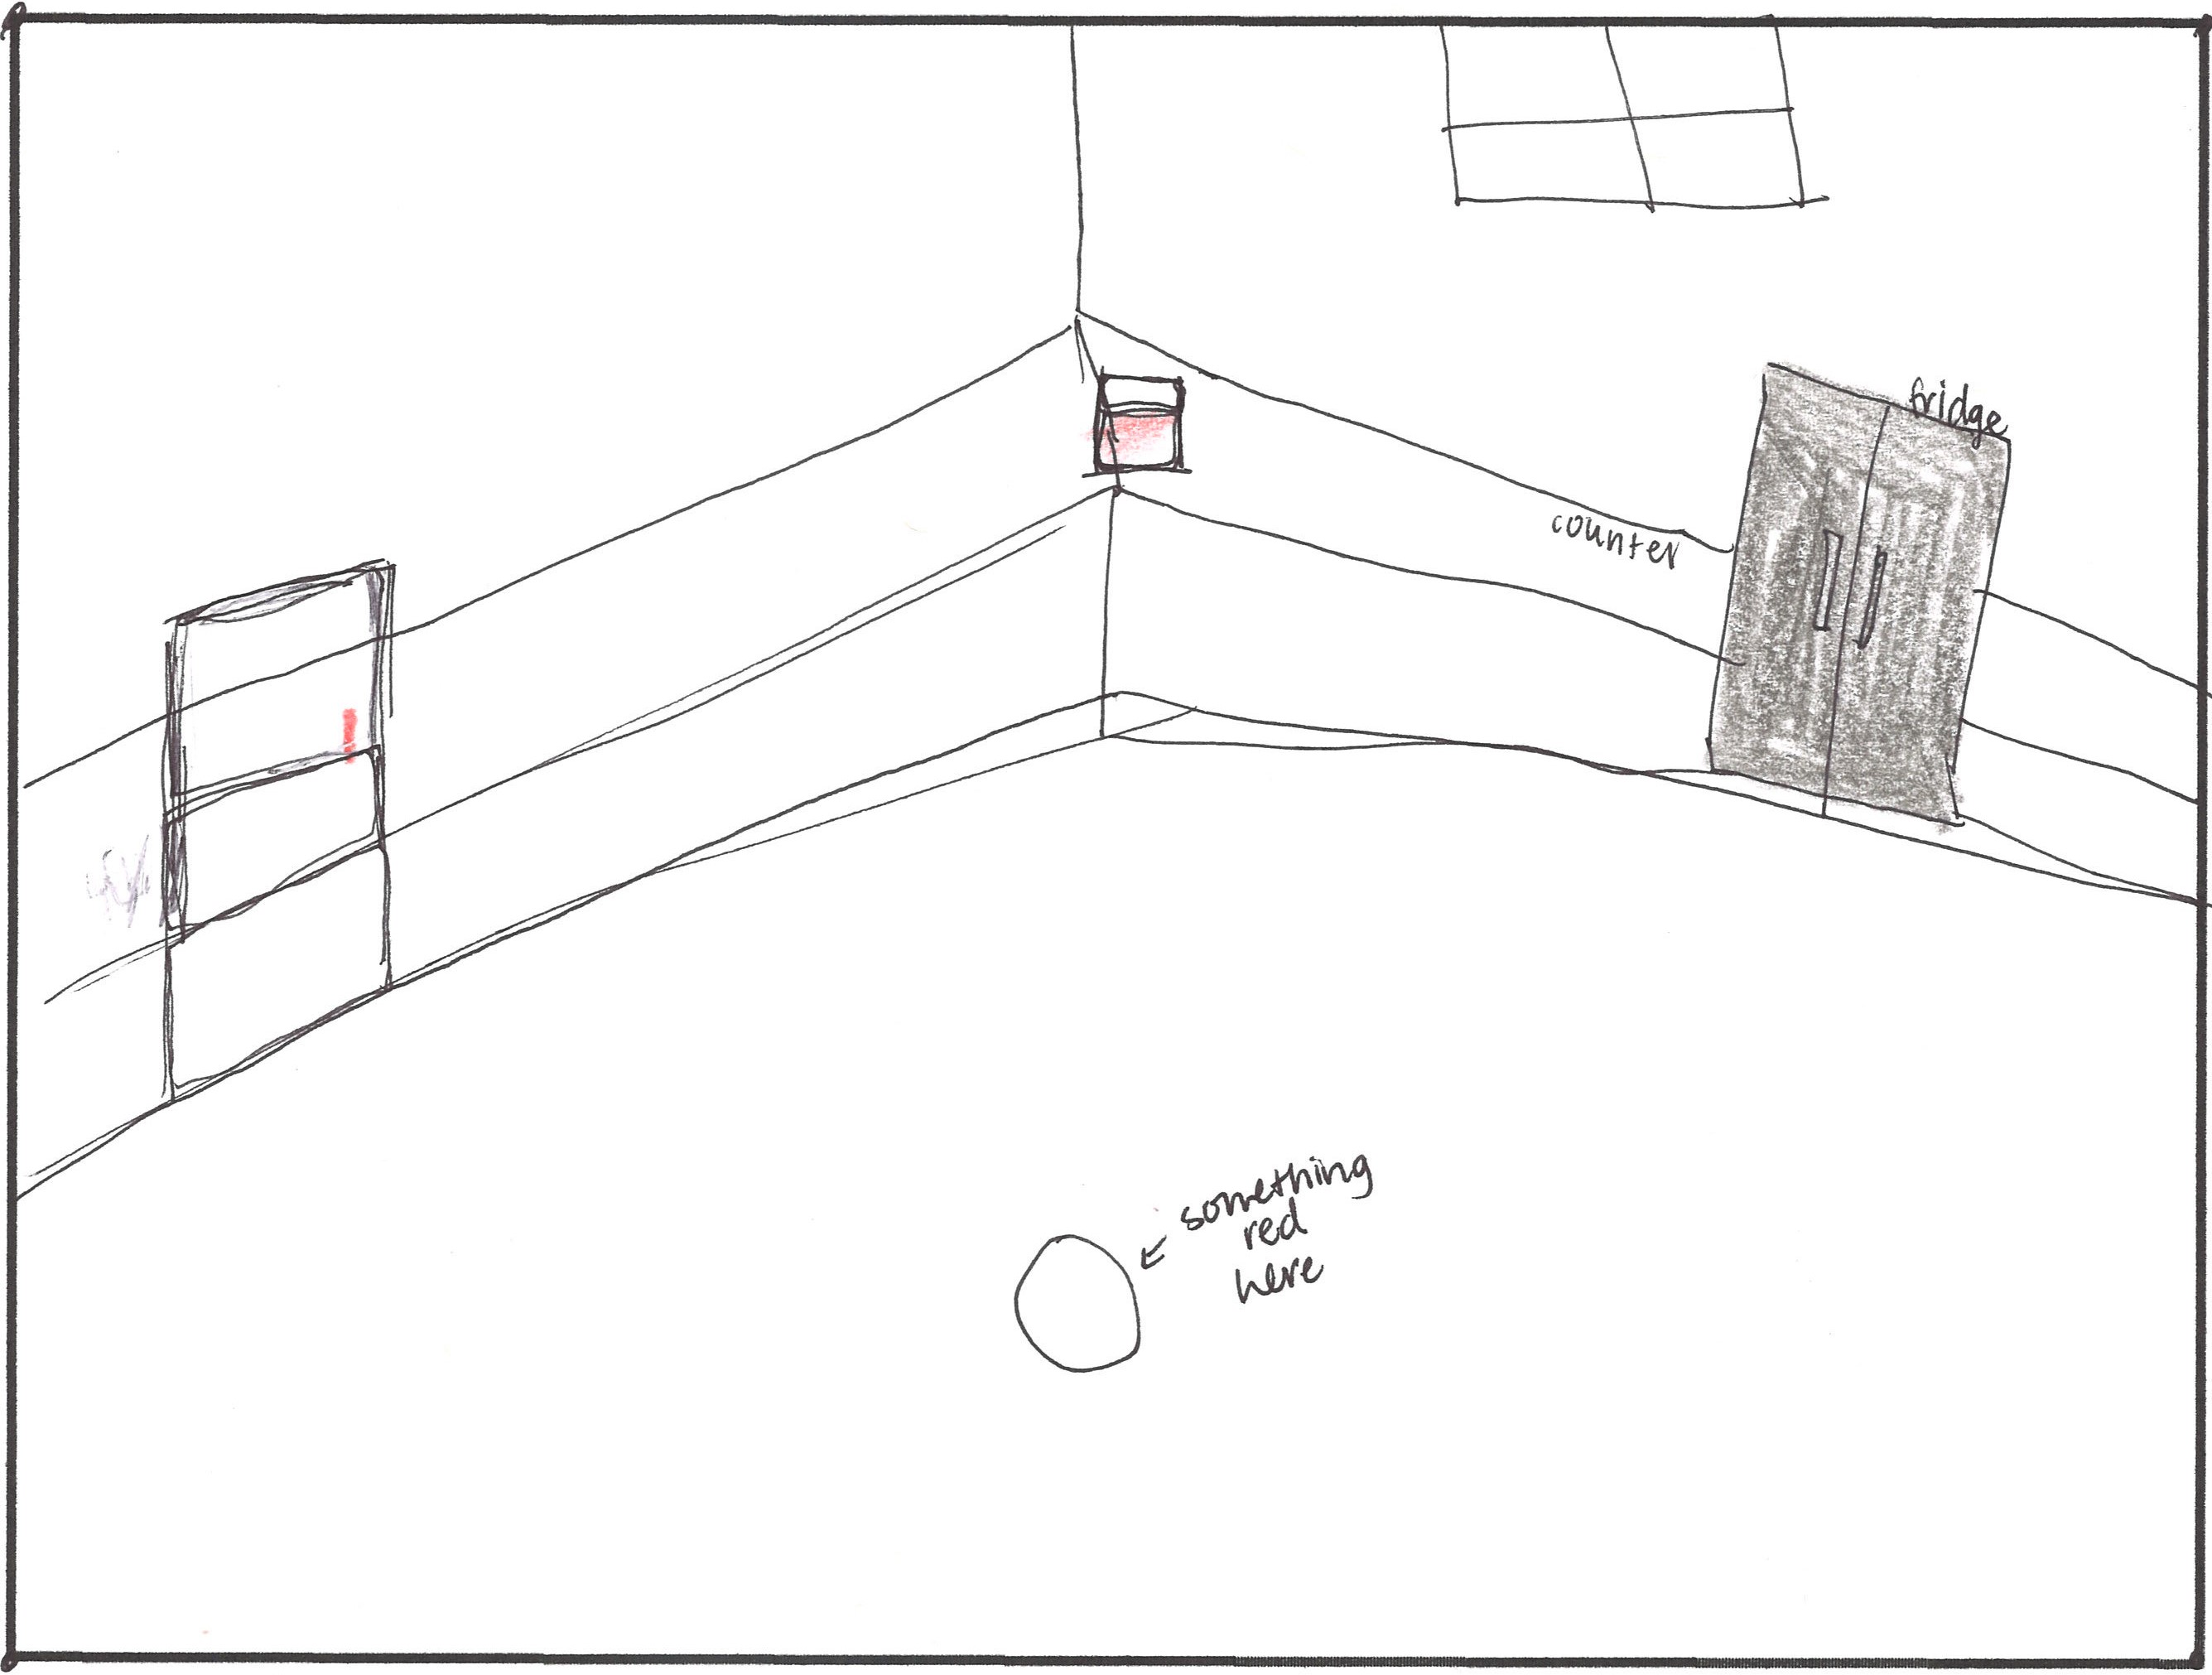 fridge
counter
something
red
here